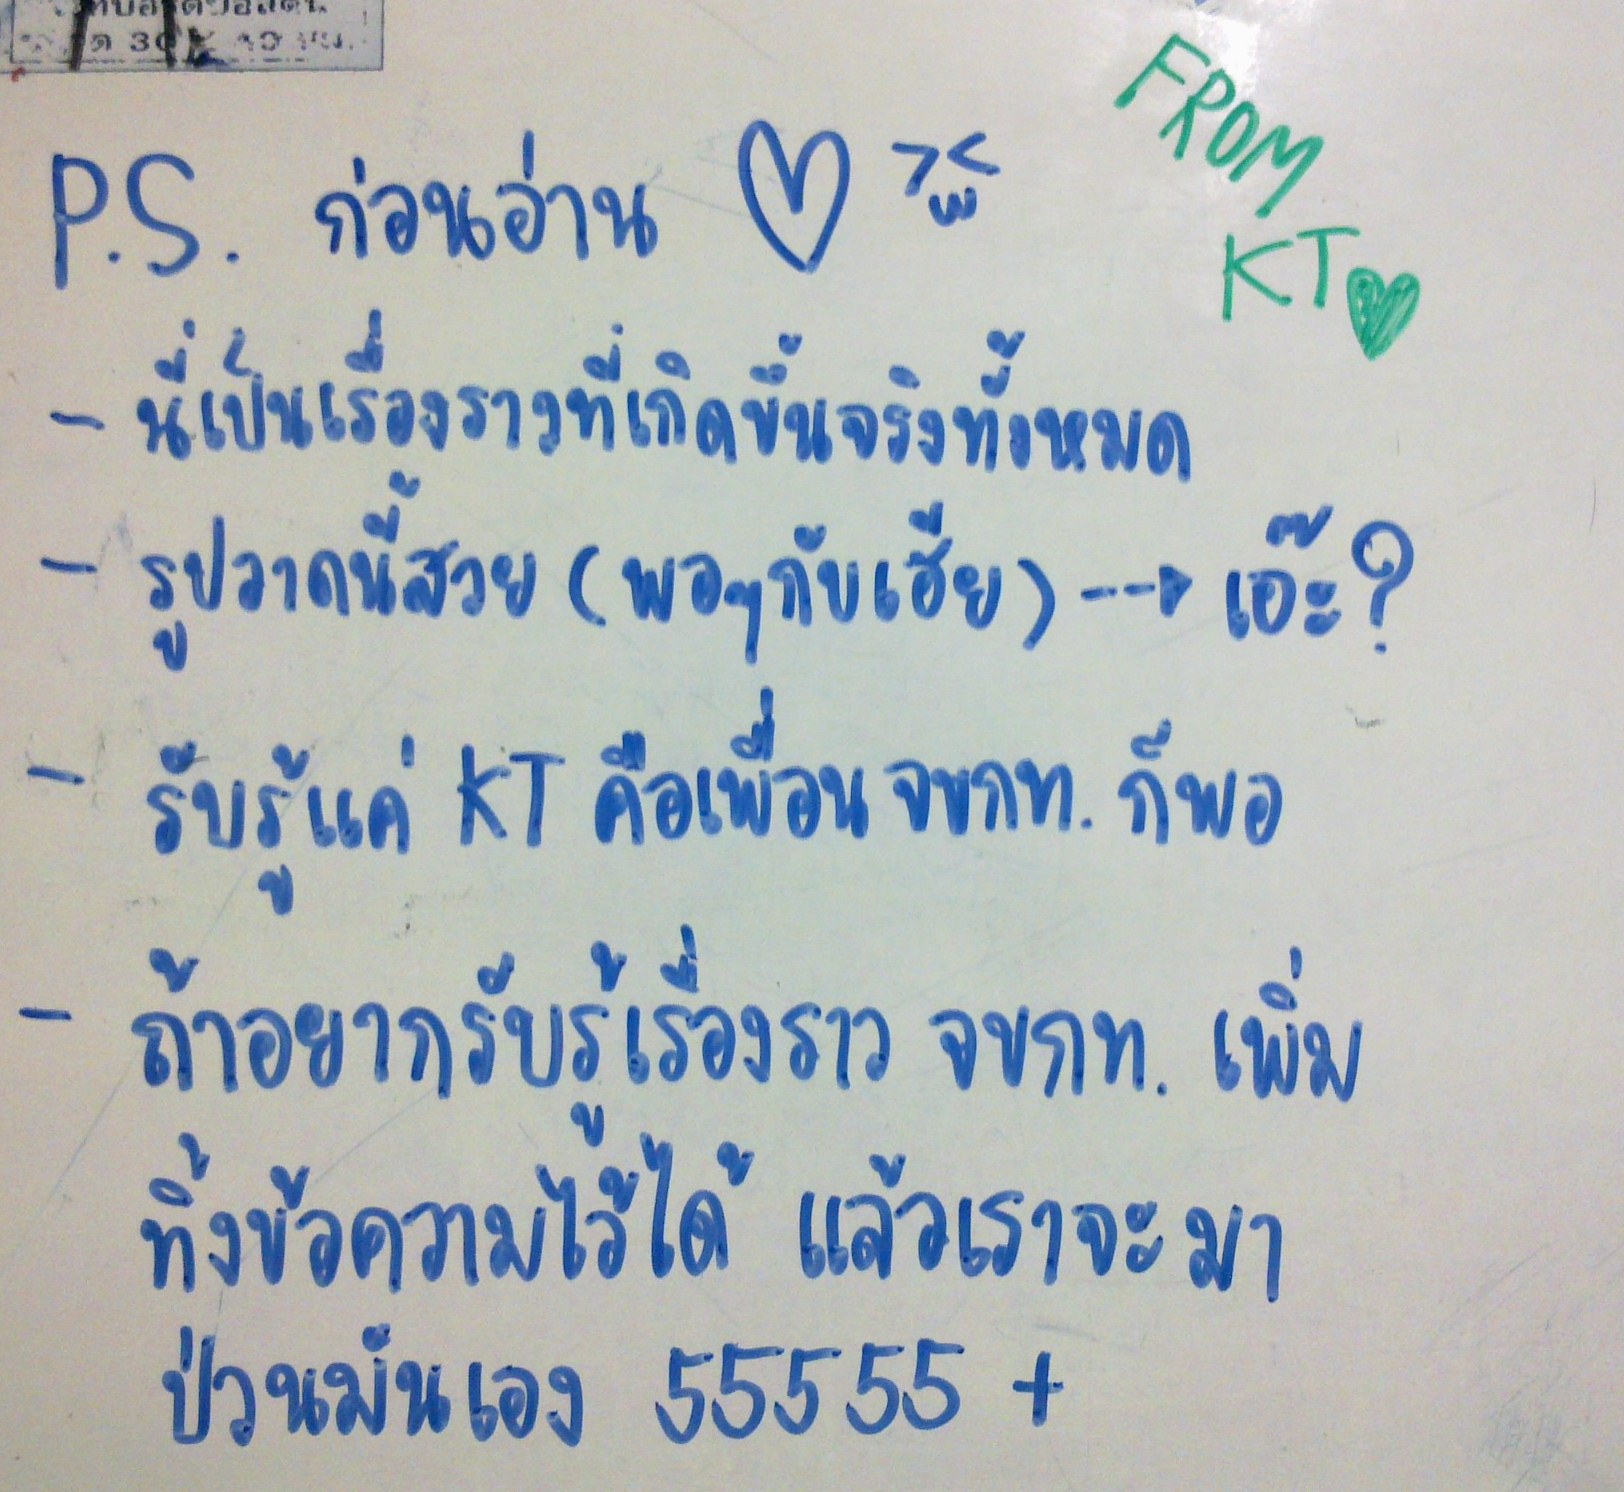 FROM
KT
P.S. ก่อนอ่าน
- นี่เป็นเรื่องราวที่เกิดขึ้นจริงทั้งหมด
- รูปวาดนี้สวย (พอๆกับเฮีย) --→ เอ๊ะ?
- รับรู้แค่ KT คือเพื่อน จขกท. ก็พอ
- ถ้าอยากรับรู้เรื่องราว จขกท. เพิ่ม
ทิ้งข้อความไว้ได้ แล้วเราจะมา
ป่วนมันเอง 55555 +